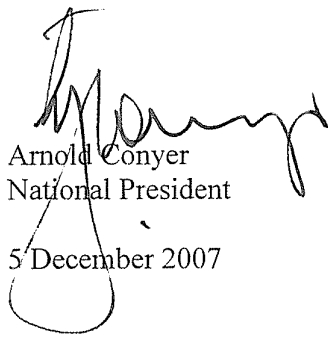 Arnold Conyer
National President
5 December 2007